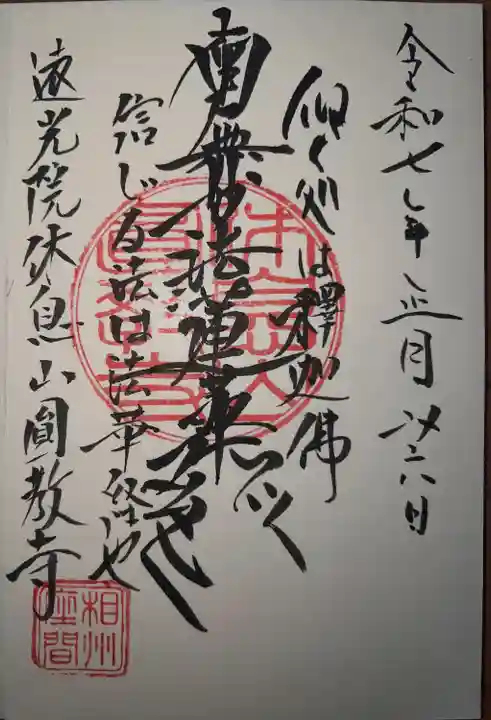 令和七年正月廿六日
仰く処は釋迦佛
南無妙法蓮華経
信じる法は法華経也
遠光院休息山圓教寺
相州
座間